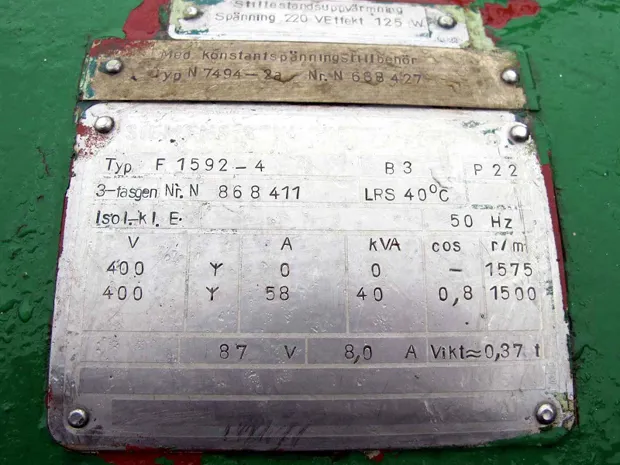 Stillestandsuppvärmning
Spänning 220 V Effekt 125 W
Med Konstantspänningstillbehör
Typ N 7494-2a Nr. N 688 427
Typ F 1592-4 B3 P22
3-fasgen Nr. N 868411 LRS 40°C
Isol.-kl. E 50 Hz
V A kVA cos r/m
400 Y 0 0 - 1575
400 Y 58 40 0,8 1500
87 V 8,0 A Vikt≈0,37 t